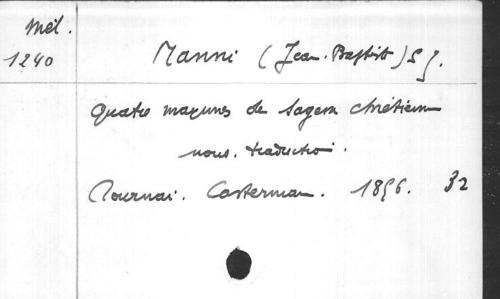 Mél.
1240
Manni (Jean-Baptist) S J.
Quatre maximes de sagesse chrétienne
nouv. traduction.
Tournai. Casterman. 1856. 32